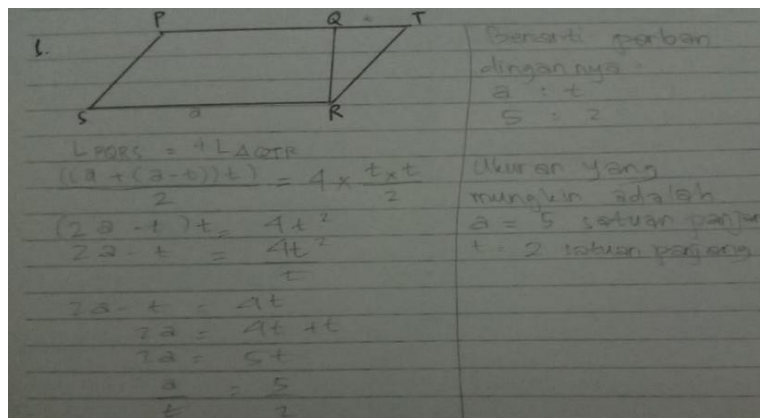 1.
P Q T
S a R
L PQRS = 4 L ΔQTR
((a + (a-t))t) / 2 = 4 × t × t / 2
(2a - t) t = 4t²
2a - t = 4t² / t
2a - t = 4t
2a = 4t + t
2a = 5t
a / t = 5 / 2
Berarti perban
dingannya :
a : t
5 : 2
Ukuran yang
mungkin adalah
a = 5 satuan panjang
t = 2 satuan panjang